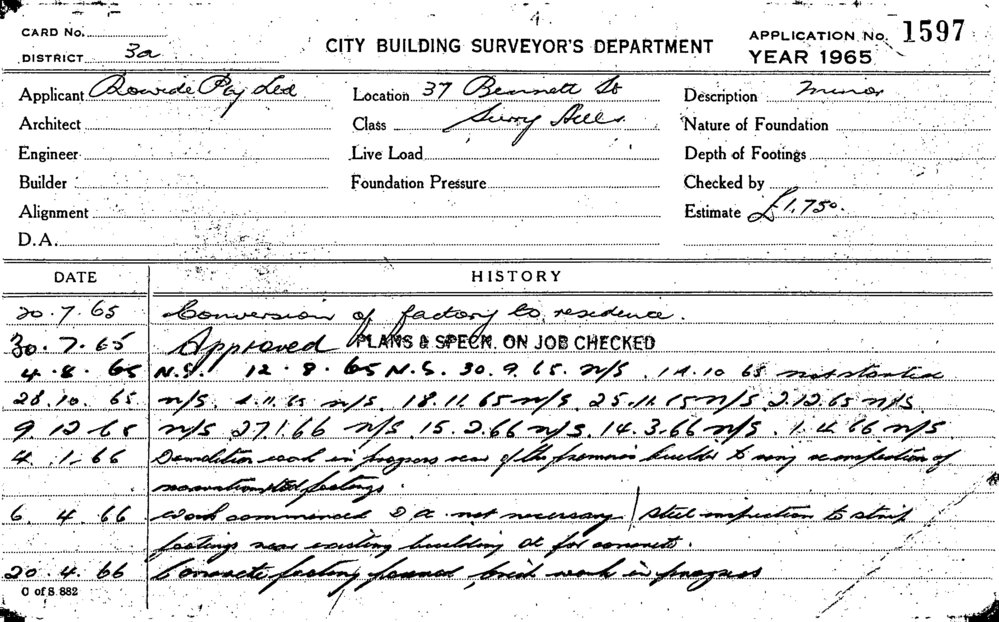 CARD No.
DISTRICT 3a
CITY BUILDING SURVEYOR'S DEPARTMENT
APPLICATION No. 1597
YEAR 1965
Applicant Rowide Pty Ltd
Location 37 Bennett St
Description minor
Architect
Class Surry Hills
Nature of Foundation
Engineer
Live Load
Depth of Footings
Builder
Foundation Pressure
Checked by
Alignment
Estimate £1,750.
D.A.
DATE HISTORY
20.7.65 Conversion of factory to residence.
30.7.65 Approved PLANS & SPECN. ON JOB CHECKED
4.8.65 N.S. 12.8.65 N.S. 30.9.65. n/S. 14.10.65 not started
28.10.65 n/S. 4.11.65 n/S. 18.11.65 n/S. 25.11.65 n/S. 2.12.65 n/S.
9.12.65 n/S 27.1.66 n/S. 15.2.66 n/S. 14.3.66 n/S. 1.4.66 n/S.
4.1.66 Demolition work in progress rear of the premises builder to ring re inspection of
footings.
6.4.66 Work commenced D A not necessary / steel inspection to strip
footings rear existing building ok for concrete.
20.4.66 Concrete footing poured, brick work in progress
C of S. 882